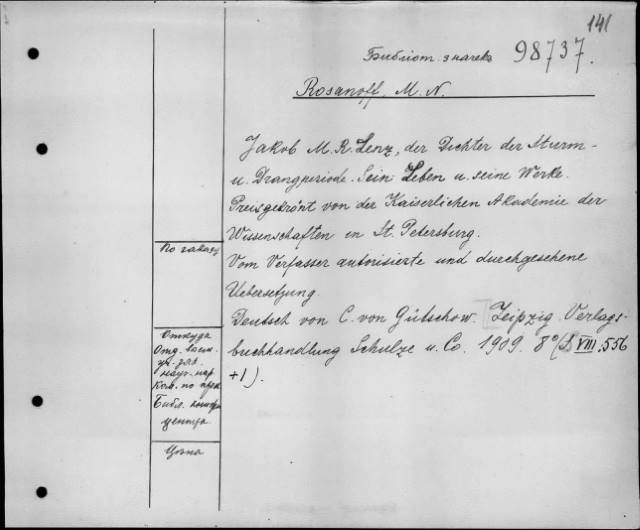 141
Библіот. значекъ 98737.
Rosanoff. M. N.
Jakob M. R. Lenz, der Dichter der Sturm-
u. Drangperiode. Sein Leben u. seine Werke.
Preisgekrönt von der Kaiserlichen Akademie der
Wissenschaften in St. Petersburg.
Vom Verfasser autorisierte und durchgesehene
Uebersetzung.
Deutsch von C. von Gütschow. Leipzig. Verlags-
buchhandlung Schulze u. Co. 1909. 8° (S VIII. 556
+1).
По заказу
Откуда
Отд.
Ком. по
Библ.
Цѣна